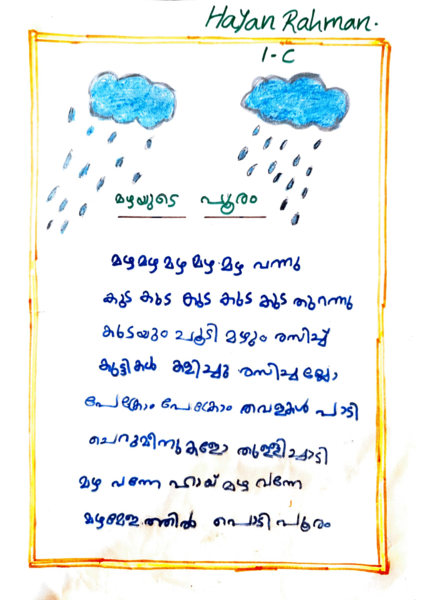 Hayan Rahman.
1-C
മഴയുടെ പൂരം
മഴ മഴ മഴ മഴ മഴ വന്നു
കുട കുട കുട കുട കുട തുറന്നു
കുടയും ചൂടി മഴയും രസിച്ച്
കുട്ടികൾ കളിച്ചു രസിച്ചല്ലോ
പേക്രോം പേക്രോം തവളകൾ പാടി
ചെറുമീനുകളോ തുള്ളിച്ചാടി
മഴ വന്നേ ഹായ് മഴ വന്നേ
പൊടി പൂരം